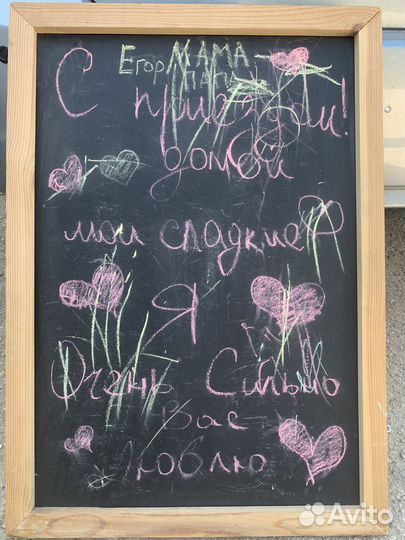 Егор МАМА
ПАПА
С приездом!
домой
мои сладкие
Я
Очень Сильно
Вас
Люблю
Avito